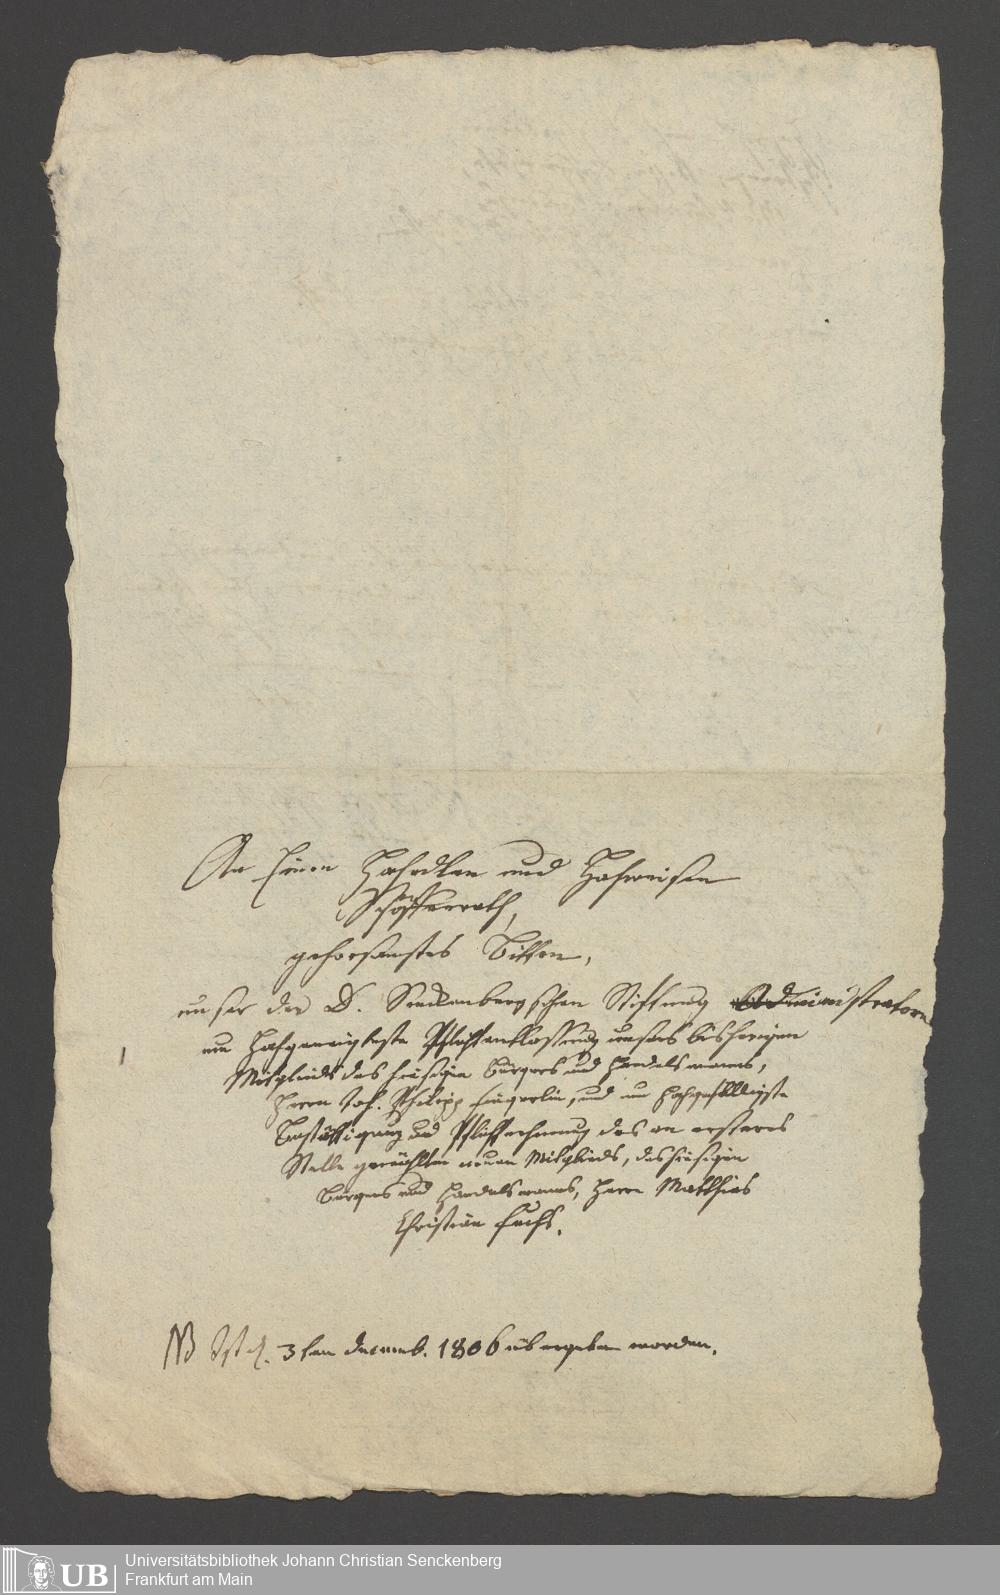 An Einen Hochedlen und Hochweisen
Schöffenrath,
gehorsamstes Bitten,
unser der D. Senckenbergischen Stiftung Administratorn
um Hochgeneigteste Pflichtentlassung unsers bisherigen
Mitglieds des hiesigen Bürgers und Handelsmanns,
Herrn Joh. Philipp Fingerlin, und um hochgefälligste
Bestättigung und Pflichtnehmung des an ersteres
Stelle gewählten neuen Mitglieds, des hiesigen
Bürgers und Handelsmanns, Herrn Matthias
Christian Fuchs.
NB Ist d. 3ten Decemb. 1806 übergeben worden.
UB
Universitätsbibliothek Johann Christian Senckenberg
Frankfurt am Main